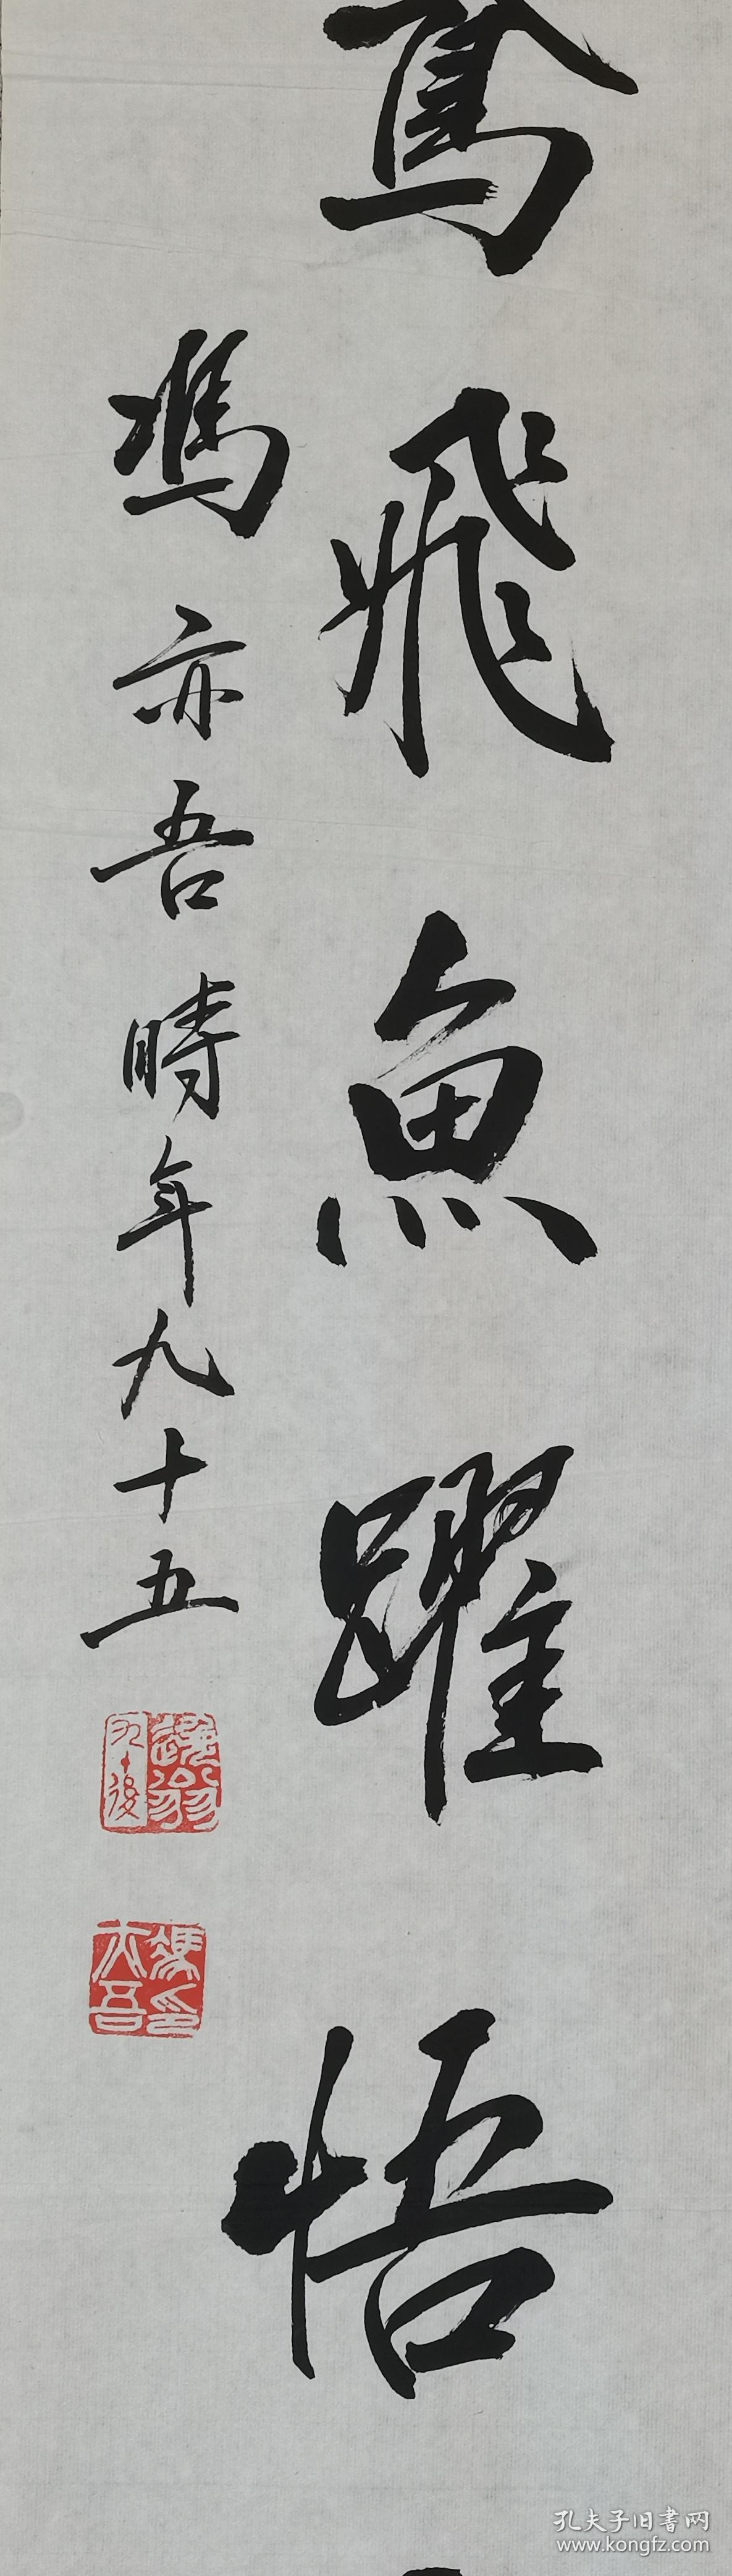 鳶飛魚躍悟
馮亦吾時年九十五
九十後
馮亦吾印
孔夫子旧书网
www.kongfz.com